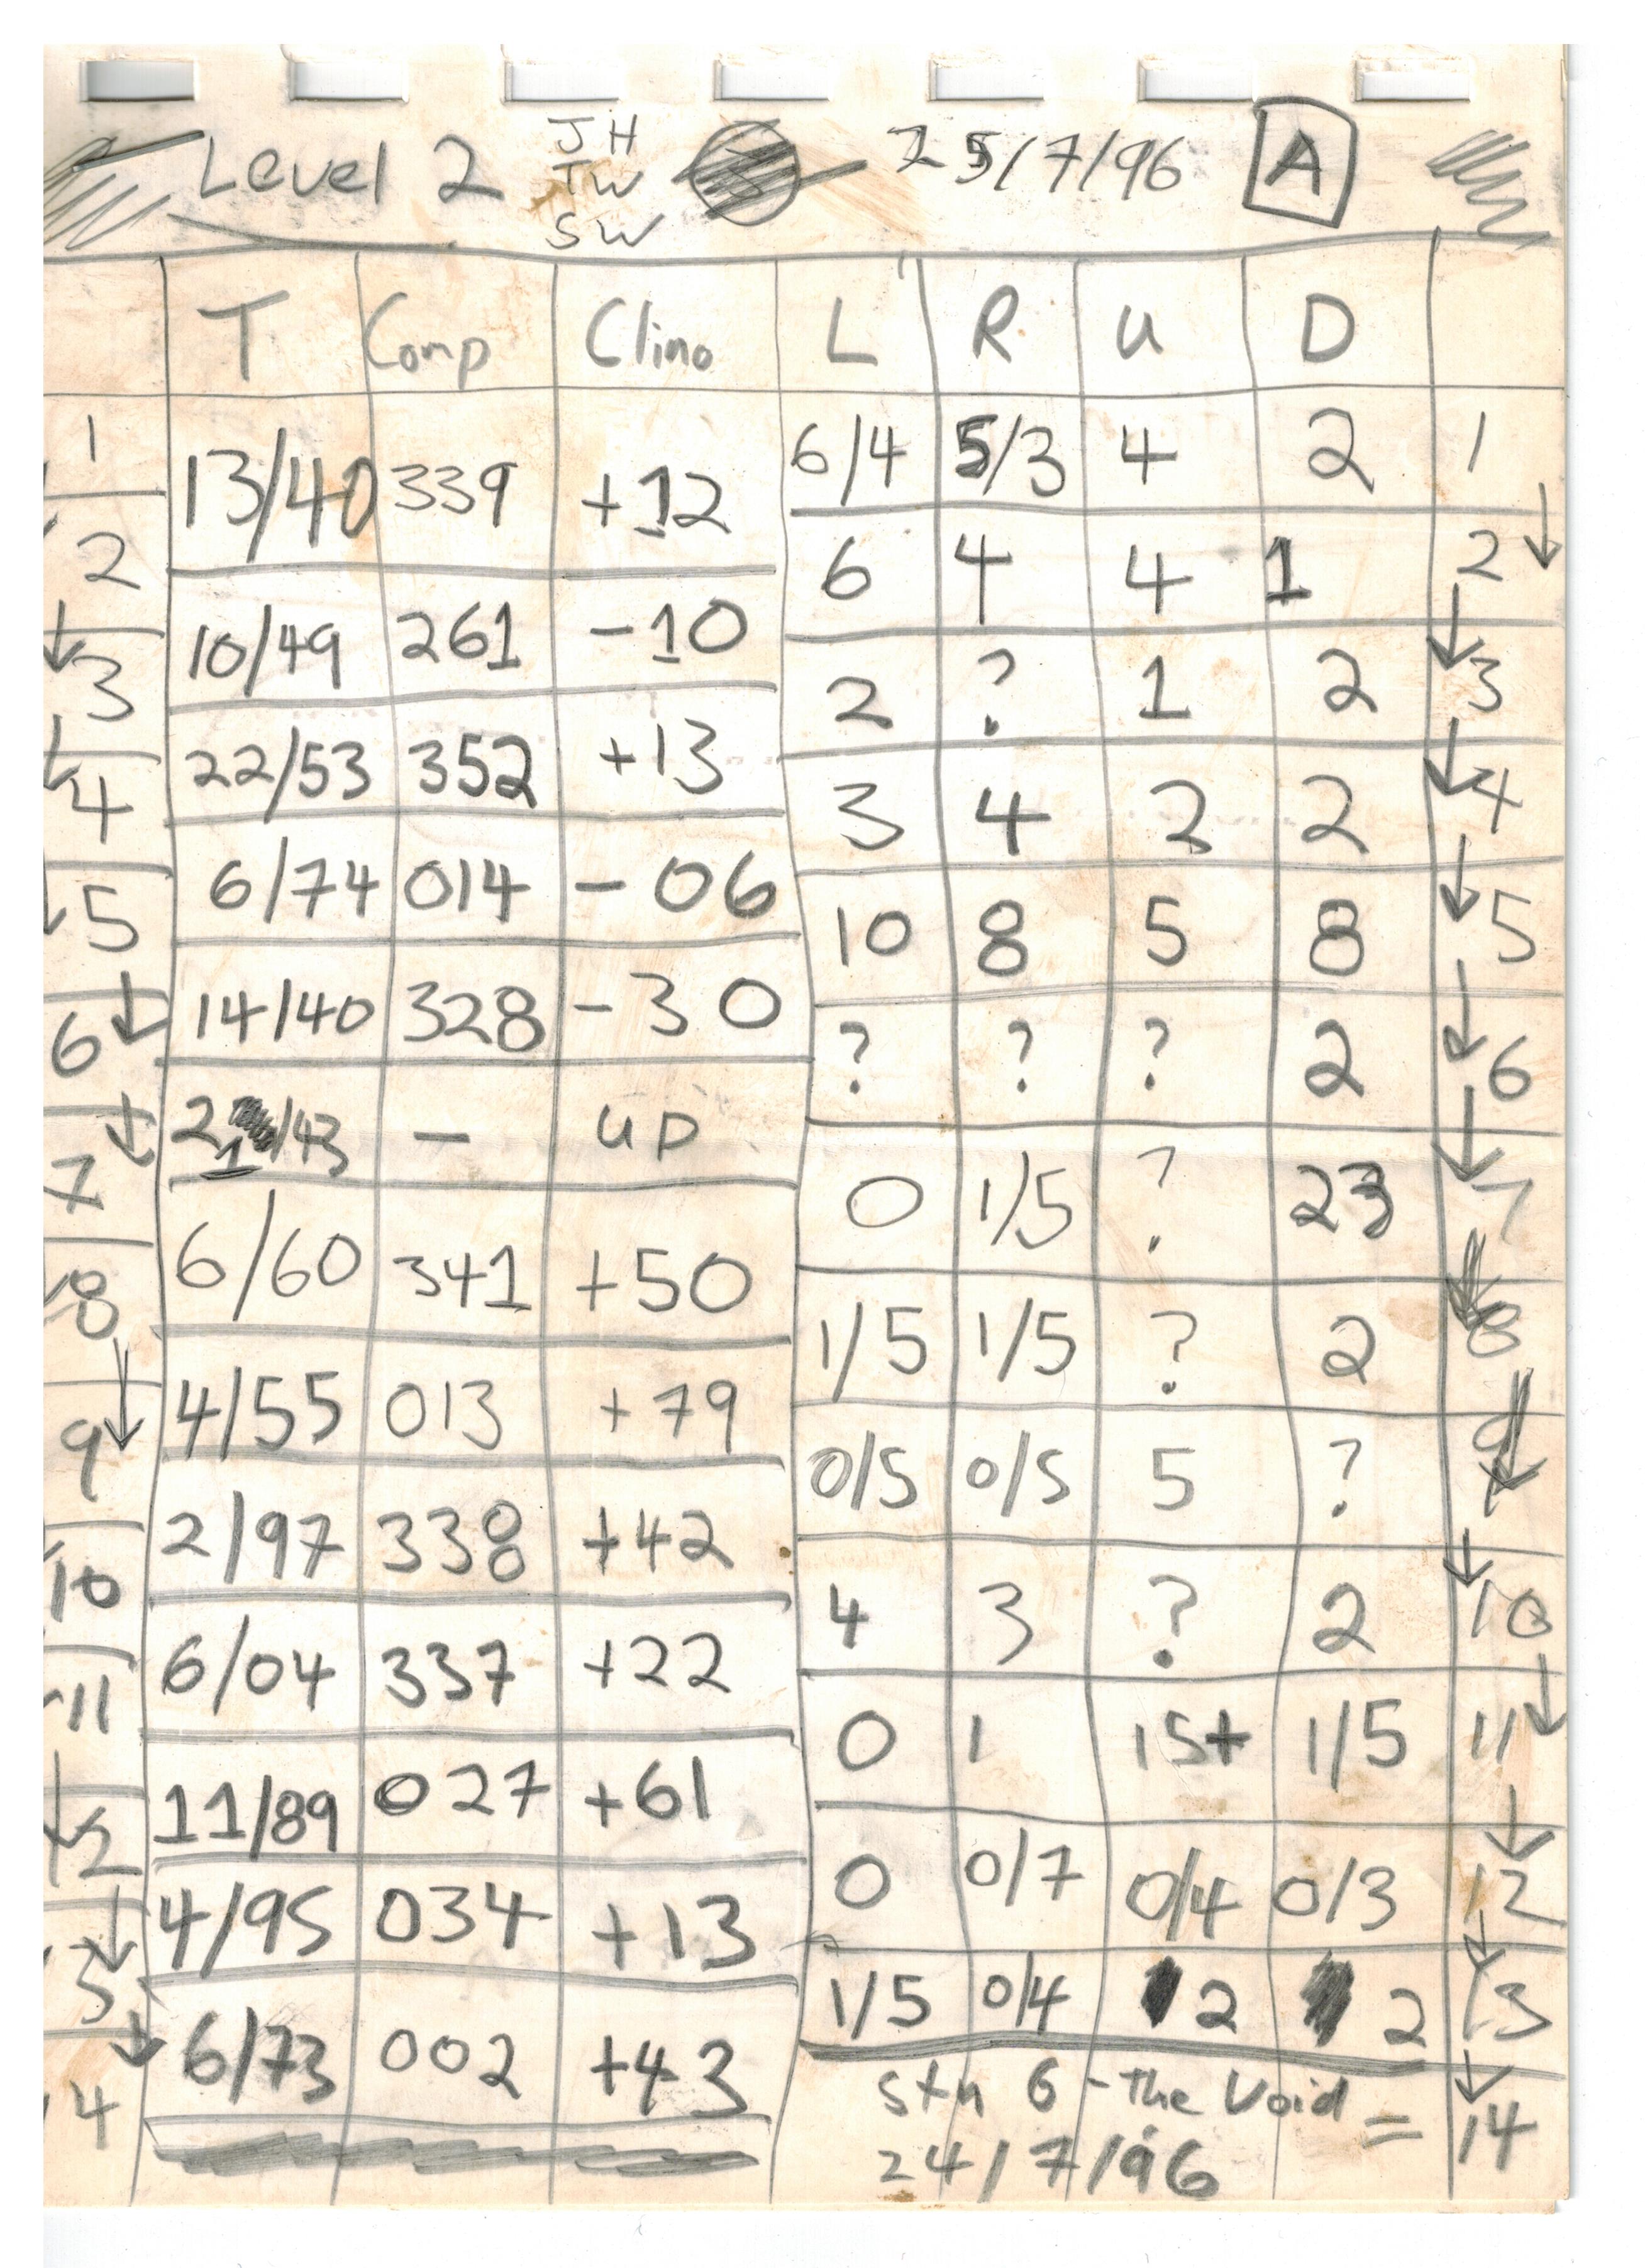 Level 2 JH 25/7/96 A
TW
SW
T Comp Clino L R U D
1 13/40 339 +12 6/4 5/3 4 2 1
2 10/49 261 -10 6 4 4 1 2
3 22/53 352 +13 2 ? 1 2 3
4 6/74 014 -06 3 4 2 2 4
5 14/40 328 -30 10 8 5 8 5
6 21/43 - UP ? ? ? 2 6
7 6/60 341 +50 0 1/5 ? 23 7
8 4/55 013 +79 1/5 1/5 ? 2 8
9 2/97 338 +42 0/5 0/5 5 ? 9
10 6/04 337 +22 4 3 ? 2 10
11 11/89 027 +61 0 1 15+ 1/5 11
12 4/95 034 +13 0 0/7 0/4 0/3 12
3 6/73 002 +43 1/5 0/4 2 2 13
4 stn 6 - The Void = 14
24/7/96